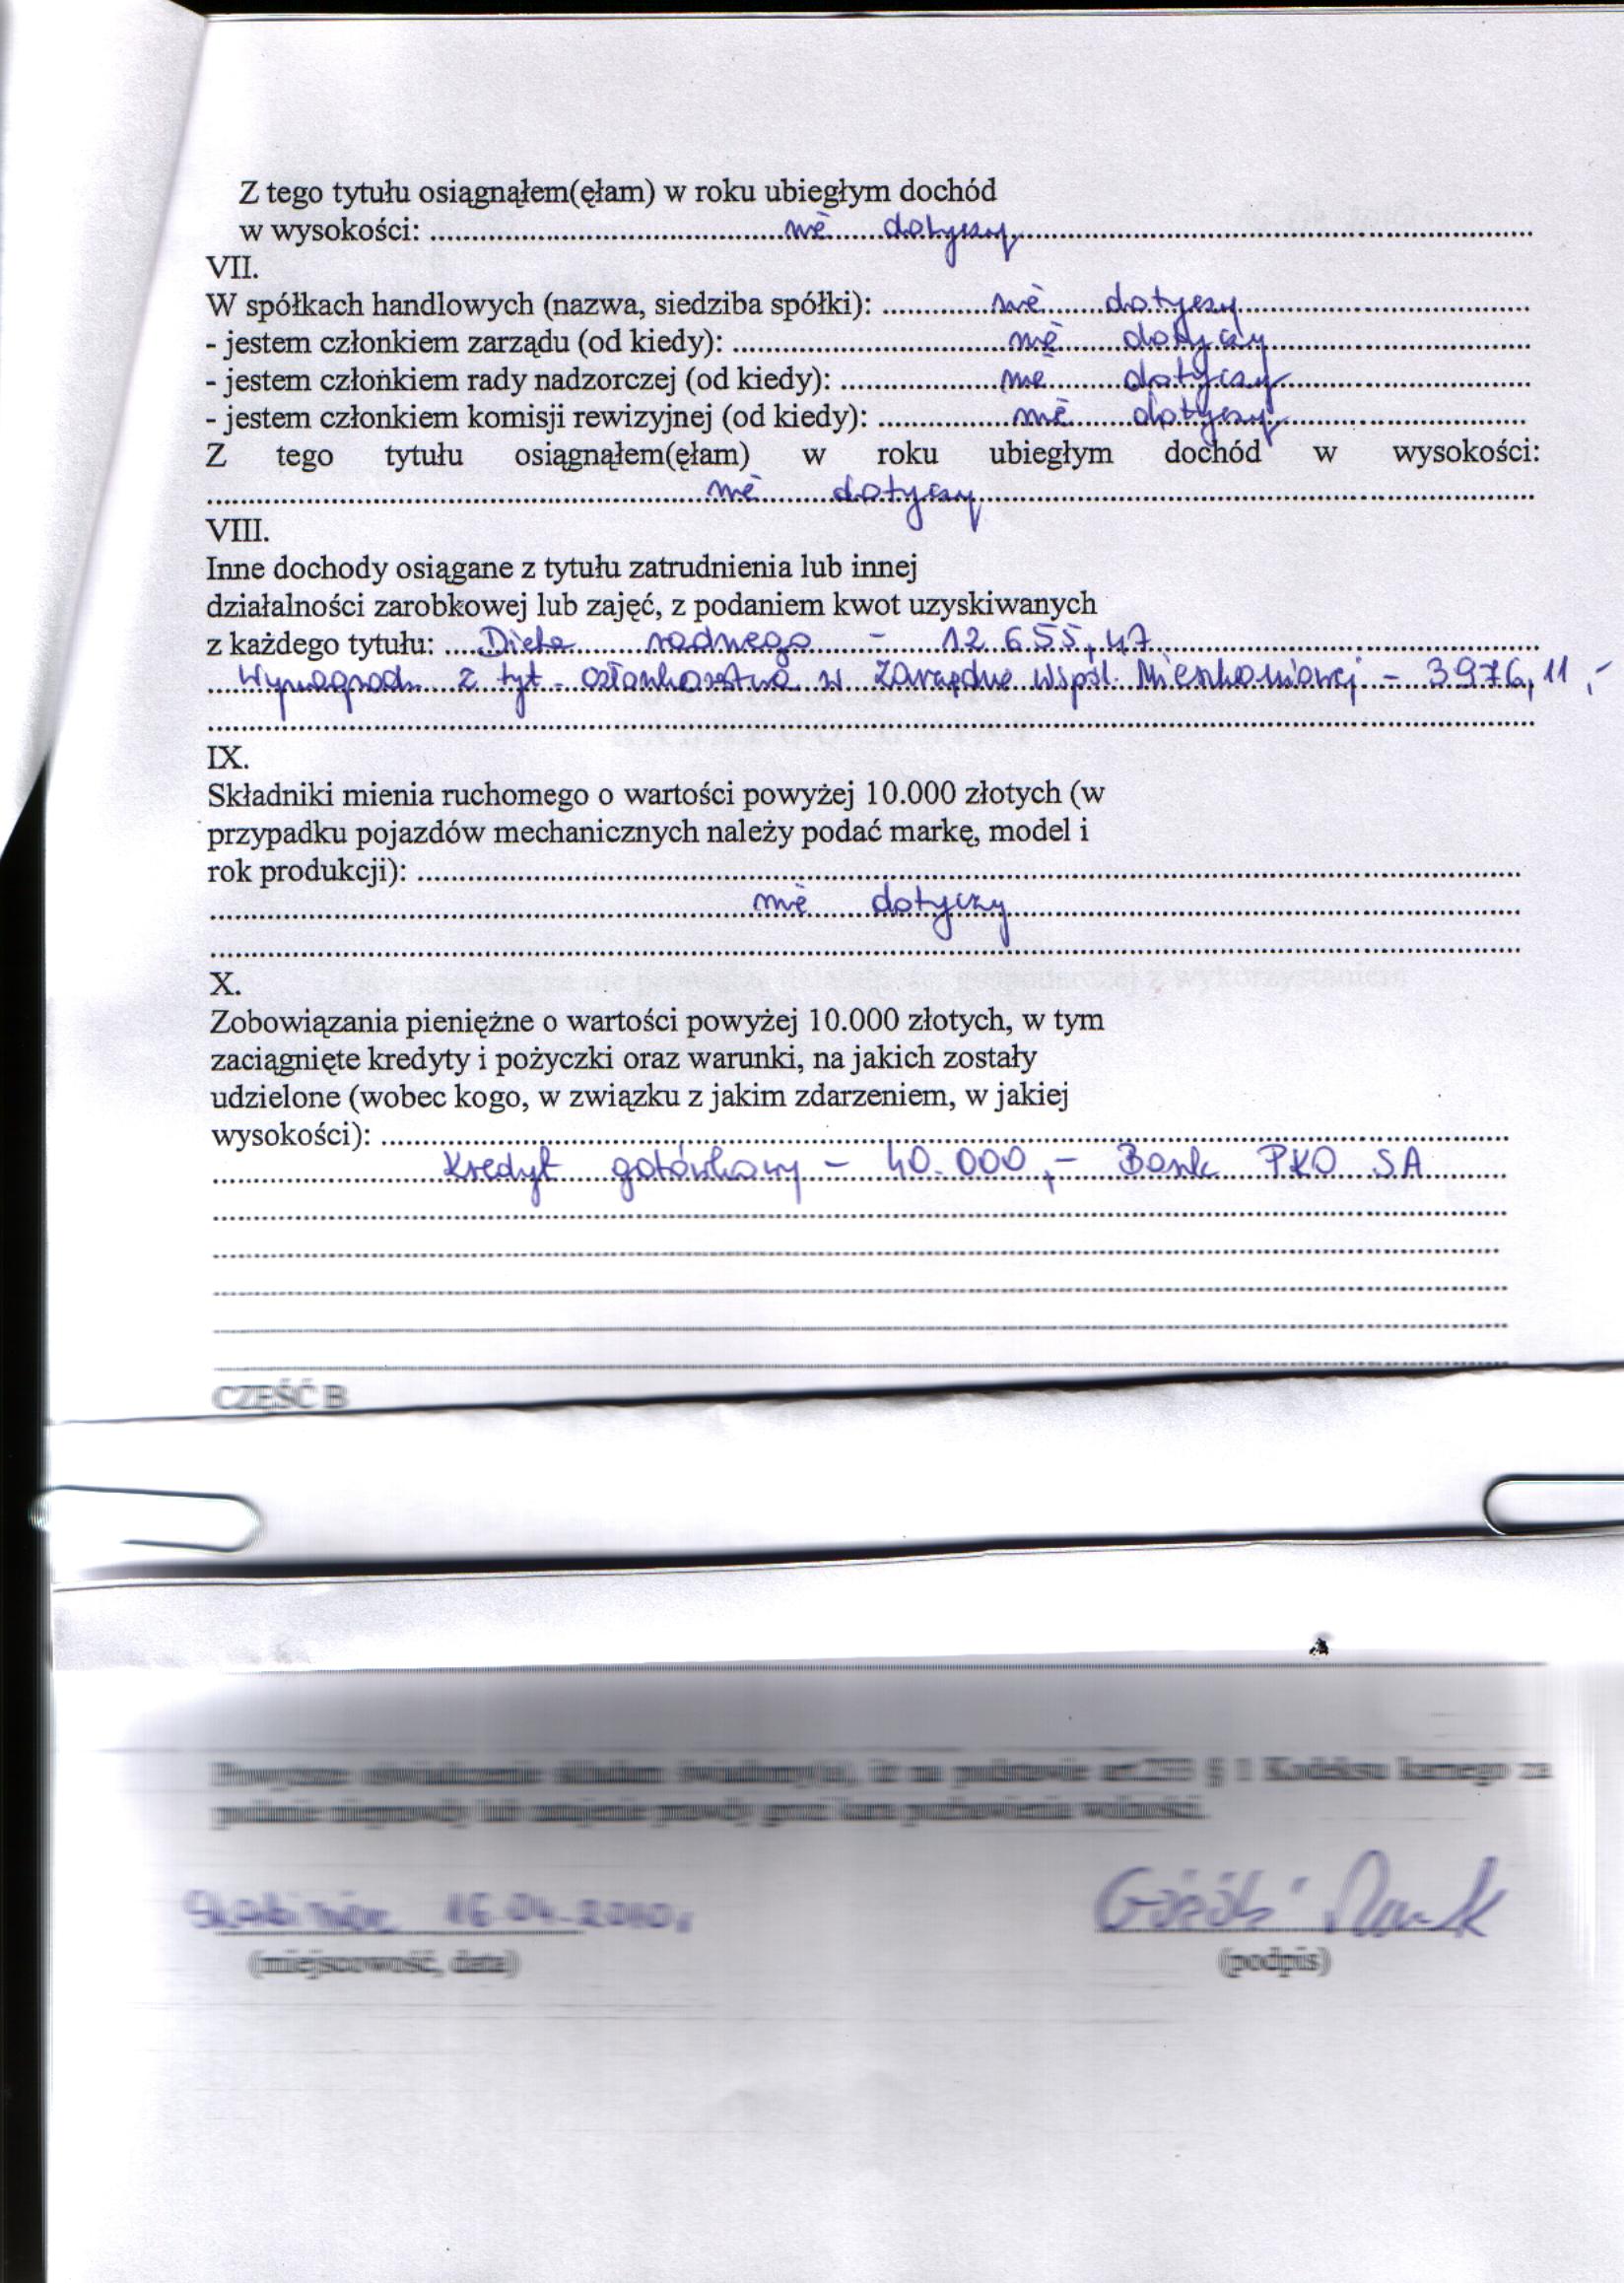 Z tego tytułu osiągnąłem(ęłam) w roku ubiegłym dochód
w wysokości: nie dotyczy
VII.
W spółkach handlowych (nazwa, siedziba spółki): nie dotyczy
- jestem członkiem zarządu (od kiedy): nie dotyczy
- jestem członkiem rady nadzorczej (od kiedy): nie dotyczy
- jestem członkiem komisji rewizyjnej (od kiedy): nie dotyczy
Z tego tytułu osiągnąłem(ęłam) w roku ubiegłym dochód w wysokości:
nie dotyczy
VIII.
Inne dochody osiągane z tytułu zatrudnienia lub innej
działalności zarobkowej lub zajęć, z podaniem kwot uzyskiwanych
z każdego tytułu: Dieta radnego - 12.655,47
Wynagrodz. z tyt. członkostwa w Zarządzie Wspól. Mieszkaniowej - 3976,11,-
IX.
Składniki mienia ruchomego o wartości powyżej 10.000 złotych (w
przypadku pojazdów mechanicznych należy podać markę, model i
rok produkcji):
nie dotyczy
X.
Zobowiązania pieniężne o wartości powyżej 10.000 złotych, w tym
zaciągnięte kredyty i pożyczki oraz warunki, na jakich zostały
udzielone (wobec kogo, w związku z jakim zdarzeniem, w jakiej
wysokości):
Kredyt gotówkowy - 40.000,- Bank PKO SA
CZĘŚĆ B
Powyższe oświadczenie składam świadomy(a), iż na podstawie art.233 § 1 Kodeksu karnego za
podanie nieprawdy lub zatajenie prawdy grozi kara pozbawienia wolności.
16.04.2010r
(miejscowość, data) (podpis)